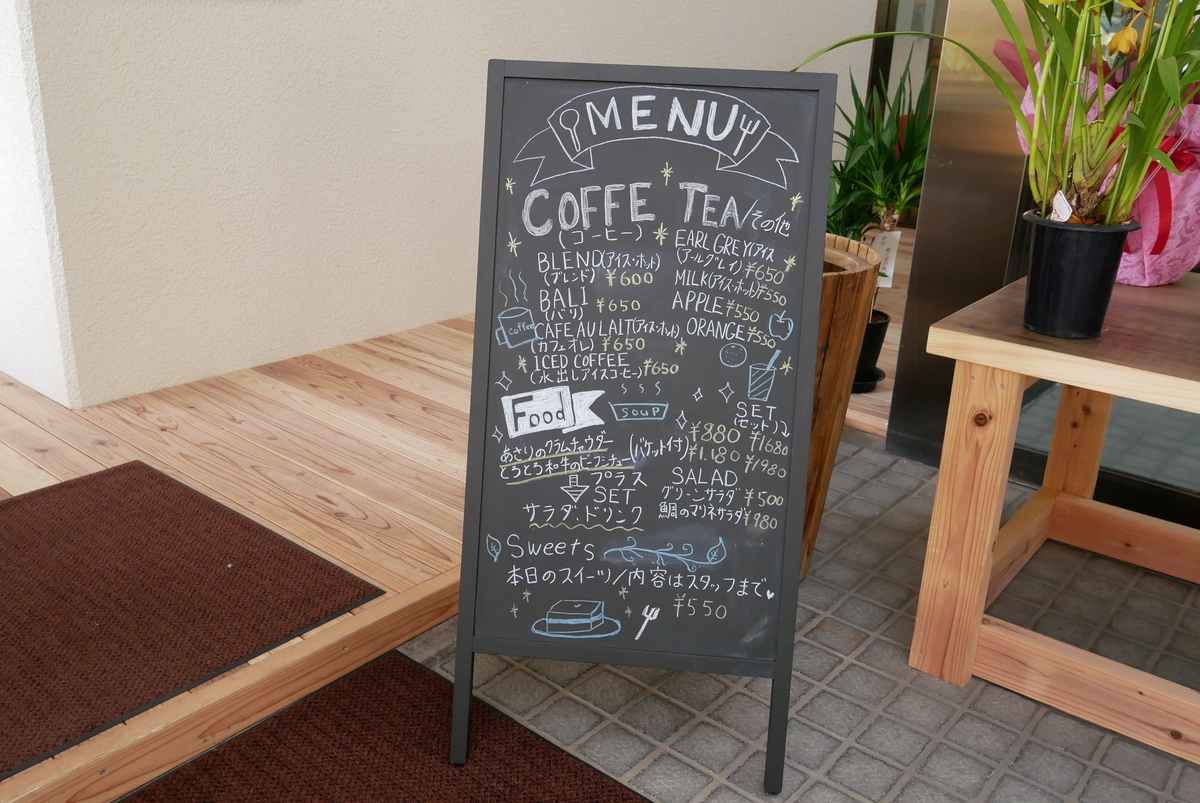 MENU
COFFE
(コーヒー)
BLEND(アイス・ホット)
(ブレンド) ¥600
BALI
(バリ) ¥650
Coffee
CAFE AU LAIT(アイス・ホット)
(カフェオレ) ¥650
ICED COFFEE
(水出しアイスコーヒー) ¥650
TEA/その他
EARL GREY(アイス
(アールグレイ) ¥650
MILK(アイス・ホット) ¥550
APPLE ¥550
ORANGE ¥550
Food
SOUP
SET
(セット)
あさりのクラムチャウダー (バケット付) ¥880 ¥1680
とろとろ和牛のビーフシチュー ¥1.180 ¥1980
プラス
SET
サラダ、ドリンク
SALAD
グリーンサラダ ¥500
鯛のマリネサラダ ¥980
Sweets
本日のスイーツ/内容はスタッフまで
¥550